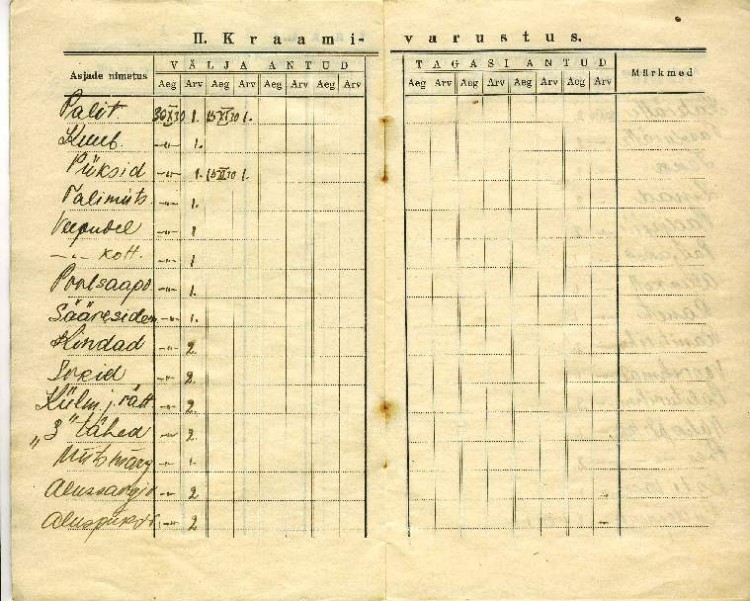 II. Kraami- varustus.
Asjade nimetus VÄLJA ANTUD TAGASI ANTUD Märkmed
Aeg Arv Aeg Arv Aeg Arv Aeg Arv Aeg Arv Aeg Arv Aeg Arv Aeg Arv
Palit. 30 XI 30 1. 15 XI 30 1.
Kuub. -"- 1.
Püksid -"- 1. 15 XI 30 1.
Talimüts. -"- 1.
Veepudel -"- 1
-"- kott. -"- 1
Poolsaapa -"- 1.
Sääresidem -"- 1.
Kindad -"- 2.
Sokid -"- 2.
Külm. j. rätt -"- 2.
„3" tähed -"- 2.
Mütsmärg -"- 1.
Alussärgid -"- 2
Aluspüksid -"- 2